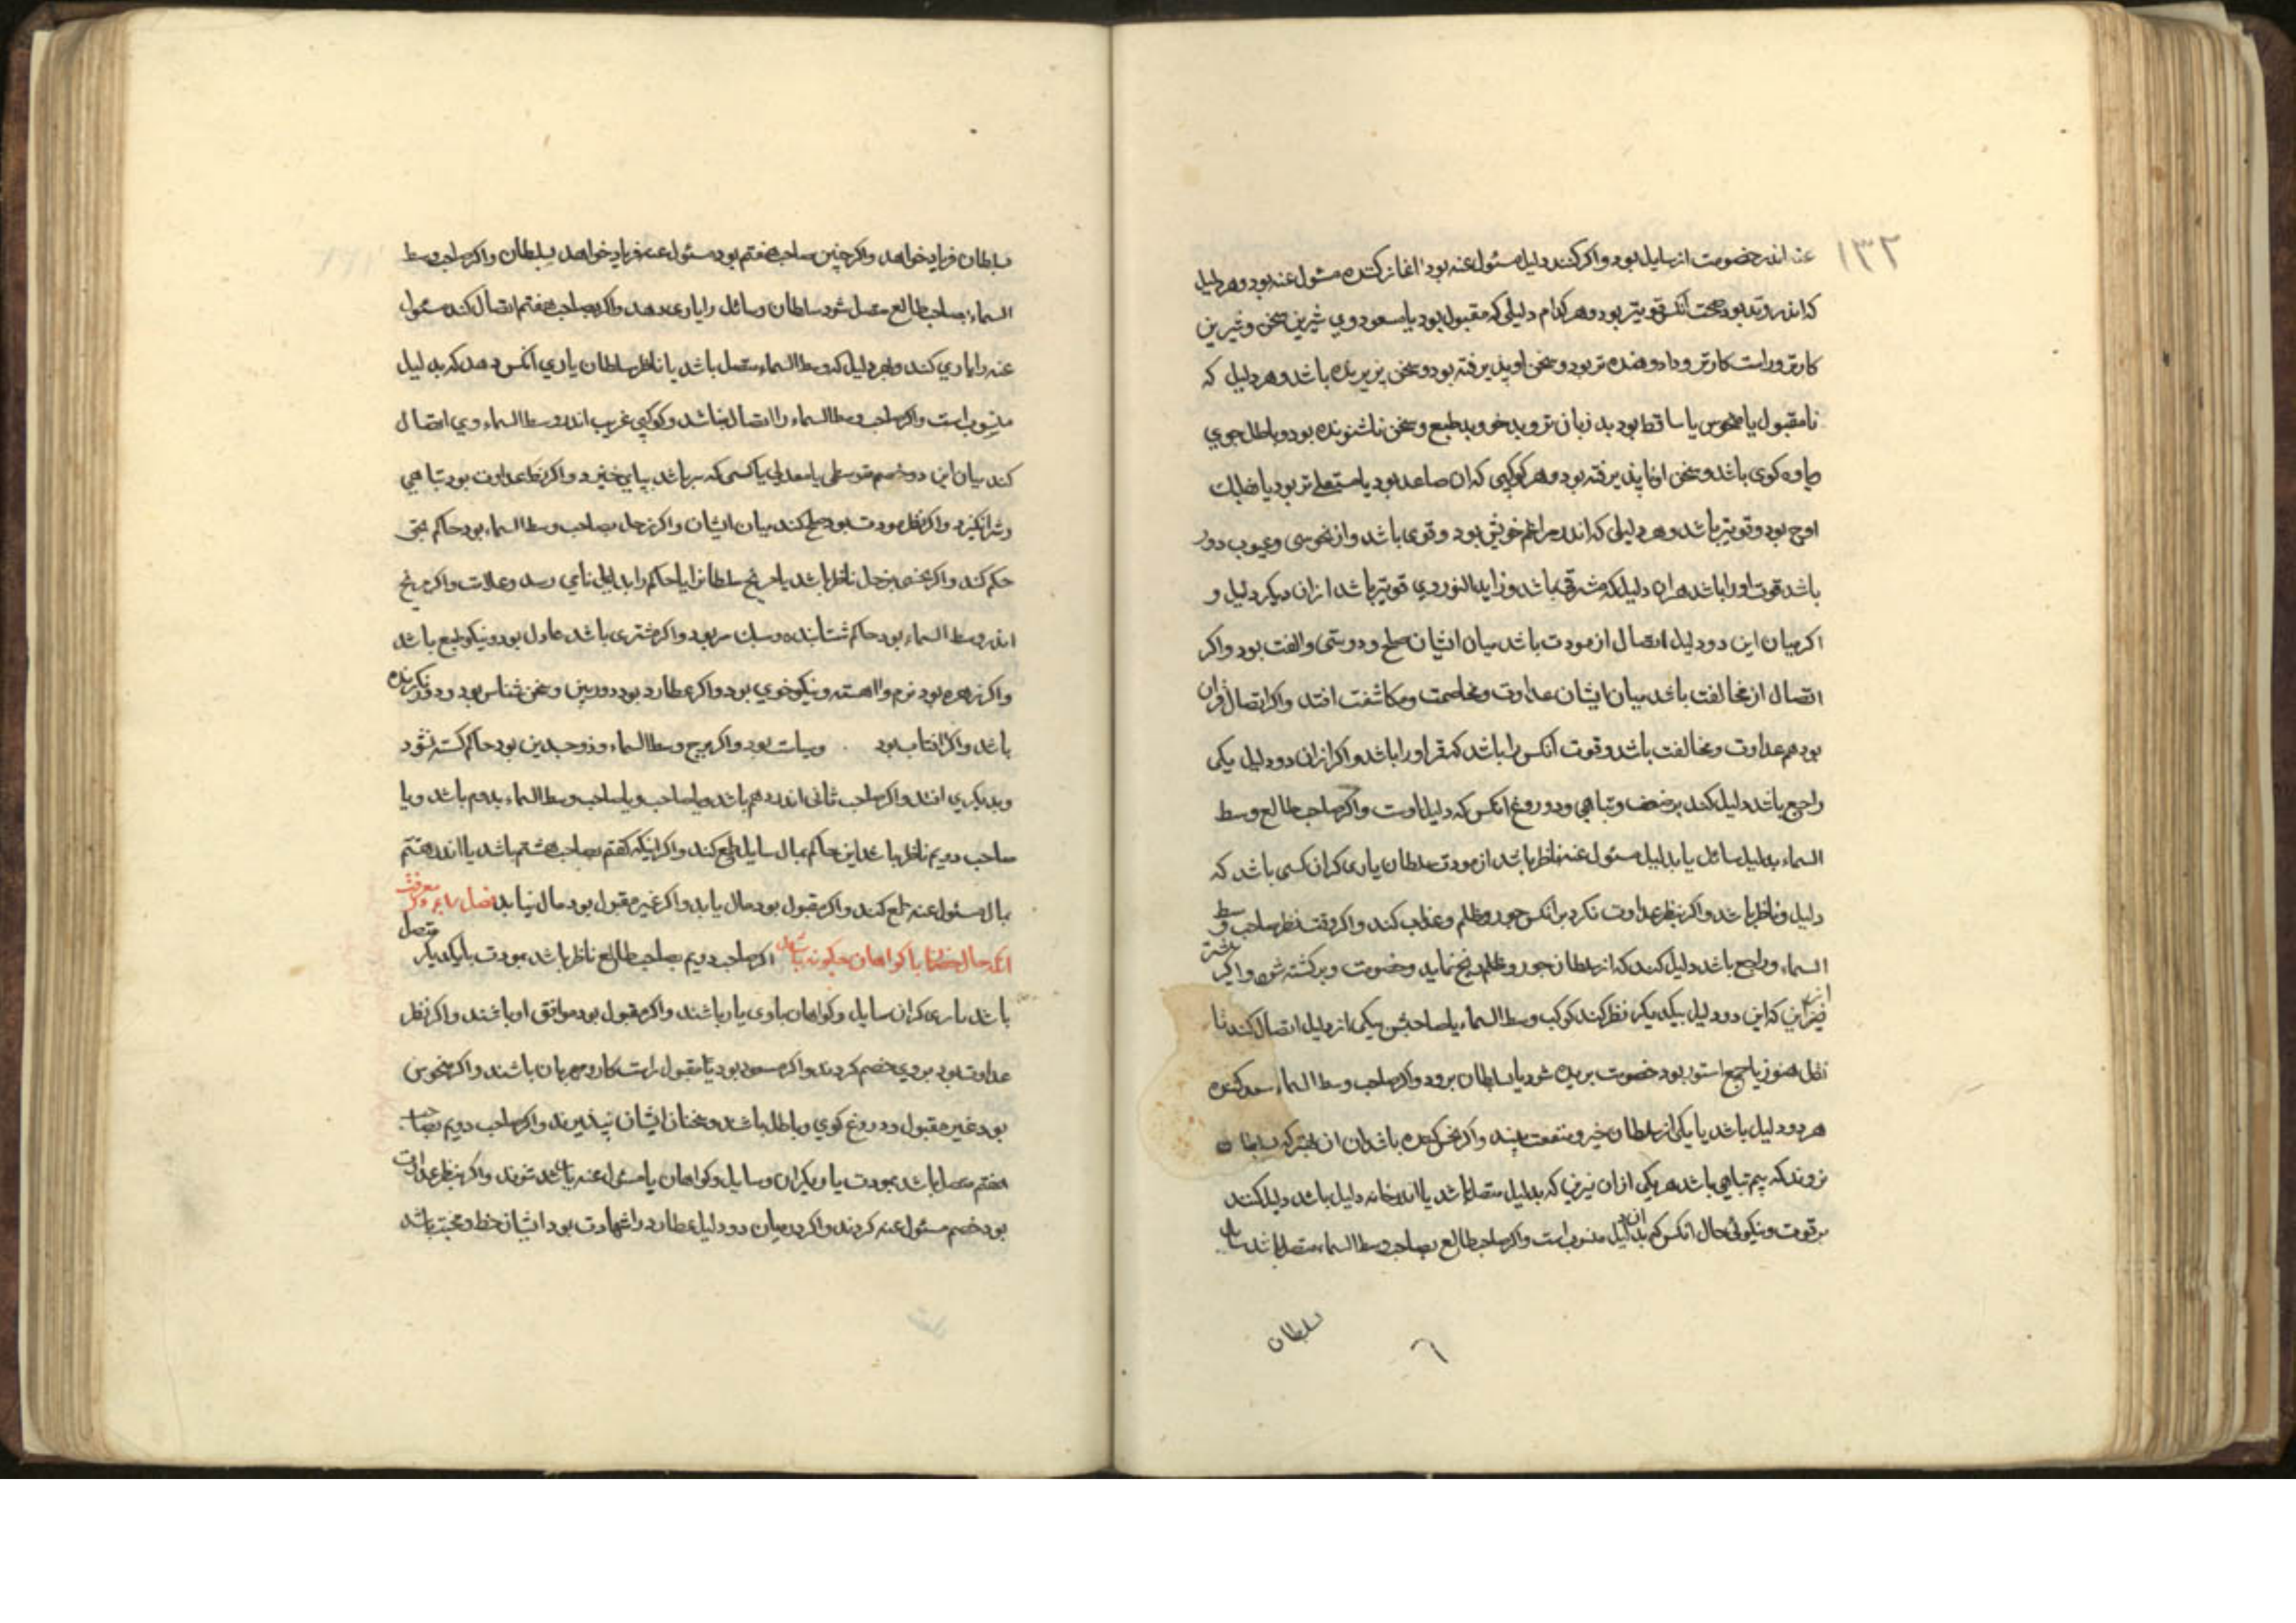 ۱۳۲
عنه اندر خصومت از سایل بود و اکر کنند دلیل مسئول عنه بود اغاز کننده مسئول عنه بود و هر دلیل
که اندر وتد بود حجت آنکس قویتر بود و هر کدام دلیلی که مقبول بود یا مسعود وی شیرین سخن و شیرین
کارتر و راست کارتر و داد دهنده تر بود و سخن او پذیرفته بود و سخن پزیرنده باشد و هر دلیل که
نامقبول یا منحوس یا ساقط بود بد زبان تر و بد خو و بد طبع و سخن ناشنونده بود و باطل جوی
و یاوه کوی باشد و سخن او ناپذیرفته بود و هر کوکبی که ان صاعد بود یا مستعلی تر بود یا
اوج بود و قویتر باشد و هر دلیلی که اندر مراغم خویش بود و قوی باشد و از نحوسی و عیوب دور
باشد قوت او را باشد هر ان دلیل که مشرقی باشد و زاید النور وی قویتر باشد از ان دیکر دلیل و
اکر میان این دو دلیل اتصال از مودت باشد میان ایشان صلح و دوستی و الفت بود و اکر
اتصال از مخالفت باشد میان ایشان عداوت و مخاصمت و مکاشفت افتد و اکر اتصال قران
بود هم عداوت و مخالفت باشد و قوت آنکس را باشد که مقر او را باشد و اکر از ان دو دلیل یکی
راجع باشد دلیل کند بر ضعف و تباهی و دروغ انکس که دلیل اوست و اکر صاحب طالع وسط
السماء بدلیل سائل یا بدلیل مسئول عنه ناظر باشد از مودت سلطان یاری کر ان کسی باشد که
دلیل و ناظر باشد و اکر بنظر عداوت نکرد بر انکس جور و ظلم و عذاب کند و اکر وقت نظر صاحب وسط
السماء و راجع باشد دلیل کند که از سلطان جور و ظلم رنج نماید و خصومت و برکشته شود و اکر
این که این دو دلیل بیکدیکر نظر کند کوکب وسط السماء یا صاحبش بیکی از دلیل اتصال کند تا
نقل هنوز یا جمع استور بود خصومت بریده شود یا سلطان برود و اکر صاحب وسط السماء سعد کننده
هر دو دلیل باشد یا یکی از سلطان خیر و منفعت بیند و اکر نحس کننده باشد ان ان بهتر که سلطان
نروند که بیم تباهی باشد هر یکی از ان نیرین که بدلیل متصل باشد یا اندر خانه دلیل باشد دلیل کند
بر قوت و نیکوئی حال انکس که بدان دلیل منسوب است و اکر صاحب طالع بصاحب وسط السماء متصل باشد سایل
سلطان
۶
سلطان فریاد خواهد و اکر چنین صاحب هفتم بود مسئول عنه فریاد خواهد بسلطان و اکر صاحب وسط
السماء بصاحب طالع متصل شود سلطان و سائل را یاری دهد و اکر بصاحب هفتم اتصال کند مسئول
عنه را یاری کند و هر دلیل که وسط السماء متصل باشد یا ناظر سلطان یاری آنکس دهد که بدلیل
منسوب است و اکر صاحب وسط السماء را اتصال نباشد و کوکبی غریب اندر وسط السماء وی اتصال
کند میان این دو خصم متوسطی یا معدلی یا کسی که سر باشد بپای خیزد و اکر نظر عداوت بود تباهی
و شر انکیزد و اکر نظر مودت بود صلح کند میان ایشان و اکر زحل بصاحب وسط السماء بود حاکم بحق
حکم کند و اکر نحسی بزحل ناظر باشد یا مریخ سلطان را یا حاکم را بد نامی رسد و علالت و اکر مریخ
اندر وسط السماء بود حاکم شتابنده و سبک سر بود و اکر مشتری باشد عادل بود و نیکو طبع باشد
و اکر زهره بود نرم و اهسته و نیکو خوی بود و اکر عطارد بود دوربین و سخن شناس بود و دور نکرنده
باشد و اکر افتاب بود و سیاست بود و اکر برج وسط السماء و ذو جسدین بود حاکم کشته شود
و بدیکری افتد و اکر صاحب ثانی اندر دهم باشد و یا صاحب و یا صاحب وسط السماء بدوم باشد و یا
صاحب دویم ناظر باشد این حاکم بمال سایل طمع کند و اکر اینکه کفتم بصاحب هشتم باشد یا اندر هفتم
بمال مسئول عنه طمع کند و اکر مقبول بود مال یابد و اکر غیر مقبول بود مال نیابد فصل معرفت
انکه حال با کواهان چکونه باشد اکر صاحب دویم بصاحب طالع ناظر باشد بمودت با یکدیکر متصل
باشد یاری کران سایل و کواهان با وی یار باشند و اکر مقبول بود موافق او باشند و اکر نظر
عداوت بود بر وی خصم کردند و اکر مسعود بود یا مقبول راست کار و مهربان باشند و اکر منحوس
بود غیر مقبول و دروغ کوی و باطل باشد و سخنان ایشان نپذیرند و اکر صاحب دویم بصاحب
هفتم متصل باشد بمودت یاریکران و سایل و کواهان یا مسئول عنه یار شوند و اکر بنظر عداوت
بود خصم مسئول عنه کردند و اکر در میان دو دلیل عطارد را شهادت بود ایشان خط و حجت باشد